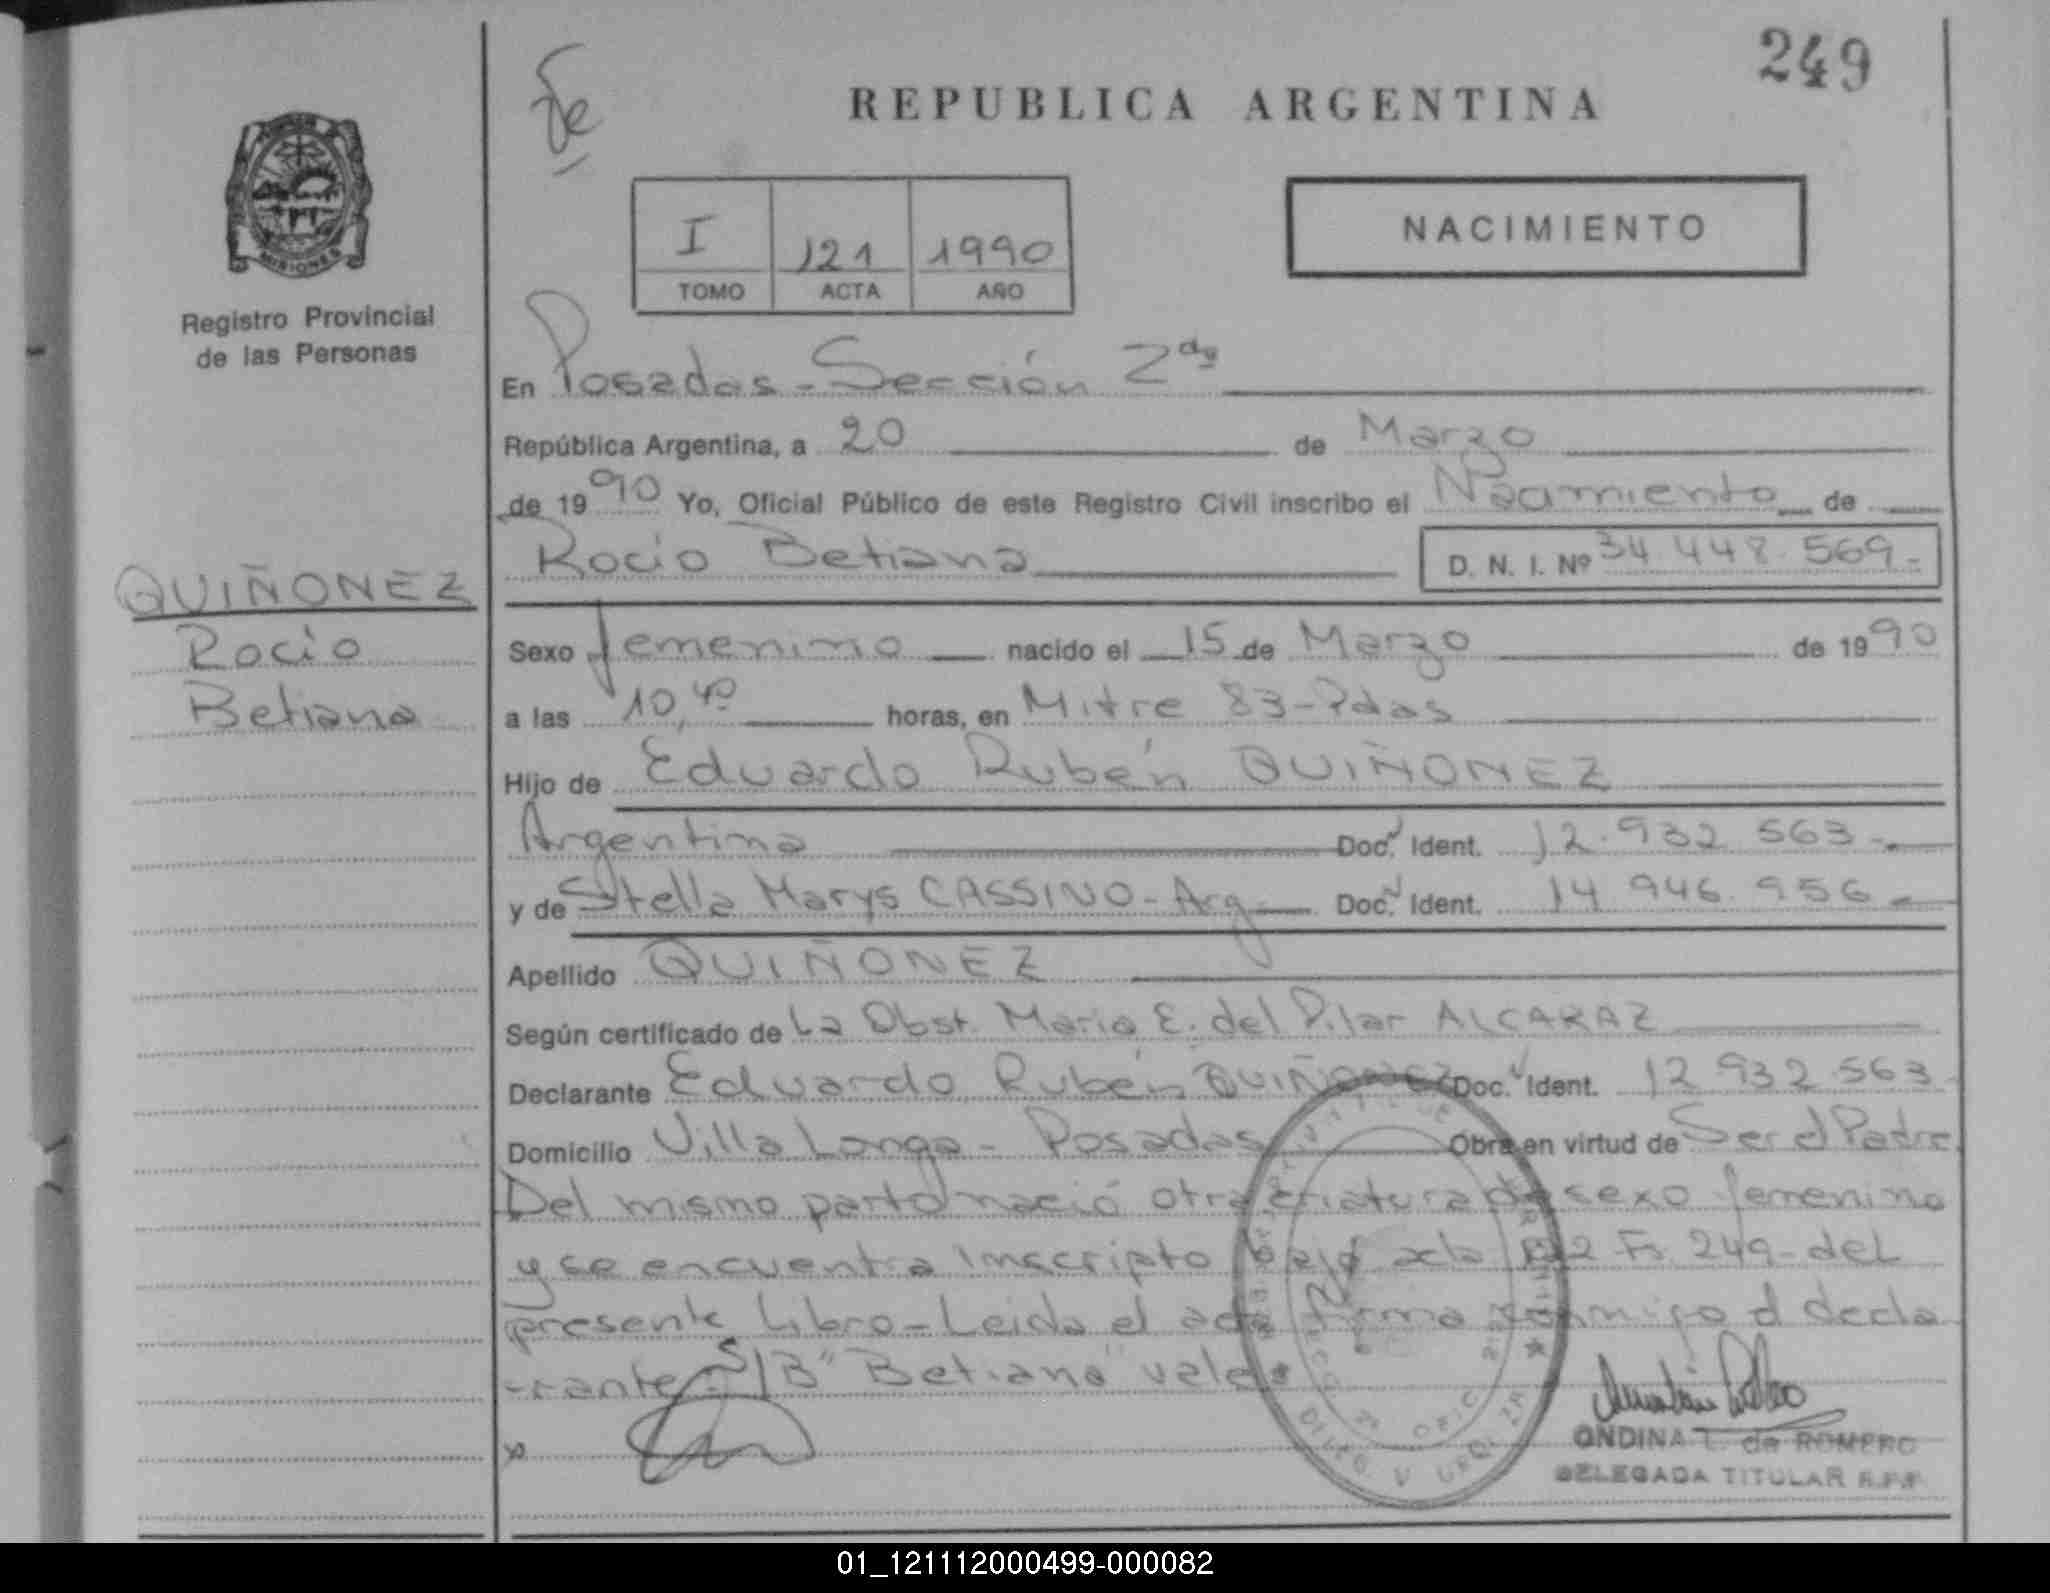 249
REPUBLICA ARGENTINA
MISIONES
Registro Provincial
de las Personas
I 121 1990
TOMO ACTA AÑO
NACIMIENTO
En Posadas - Sección 2da
República Argentina, a 20 de Marzo
de 1990 Yo, Oficial Público de este Registro Civil inscribo el Nacimiento de
Rocio Betiana D. N. I. Nº 34.448.569.-
QUIÑONEZ
Rocio
Betiana
Sexo femenino nacido el 15 de Marzo de 1990
a las 10,40 horas, en Mitre 83 - Pdas
Hijo de Eduardo Rubén QUIÑONEZ
Argentina Doc. Ident. 12.932.563.-
y de Stella Marys CASSINO - Arg Doc. Ident. 14.946.956.-
Apellido QUIÑONEZ
Según certificado de La Obst. Maria E. del Pilar ALCARAZ
Declarante Eduardo Rubén QUIÑONEZ Doc. Ident. 12.932.563.
Domicilio Villa Longa - Posadas Obra en virtud de Ser el Padre.
Del mismo parto nació otra criatura de sexo femenino
y se encuentra inscripto bajo acta 122 Fs. 249 - del
presente Libro - Leida el acta firma conmigo el decla
-rante - S/B "Betiana" vale
ONDINA L. de ROMERO
DELEGADA TITULAR R.P.P.
01_121112000499-000082